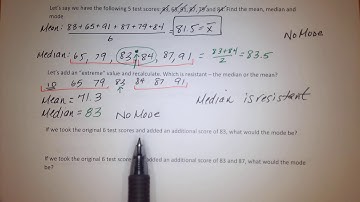 Let's say we have the following 5 test scores: 83, 65, 91, 87, 79 and 84. Find the mean, median and
mode
Mean: 83+65+91+87+79+84 / 6 = 81.5 = x̄
No Mode
Median: 65, 79, 83 84, 87, 91 = (83+84)/2 = 83.5
Let's add an "extreme" value and recalculate. Which is resistant – the median or the mean?
10 65 79, 83 84 87 91,
Mean = 71.3
Median is resistant
Median = 83 No Mode
If we took the original 6 test scores and added an additional score of 83, what would the mode be?
If we took the original 6 test scores and added an additional score of 83 and 87, what would the mode
be?